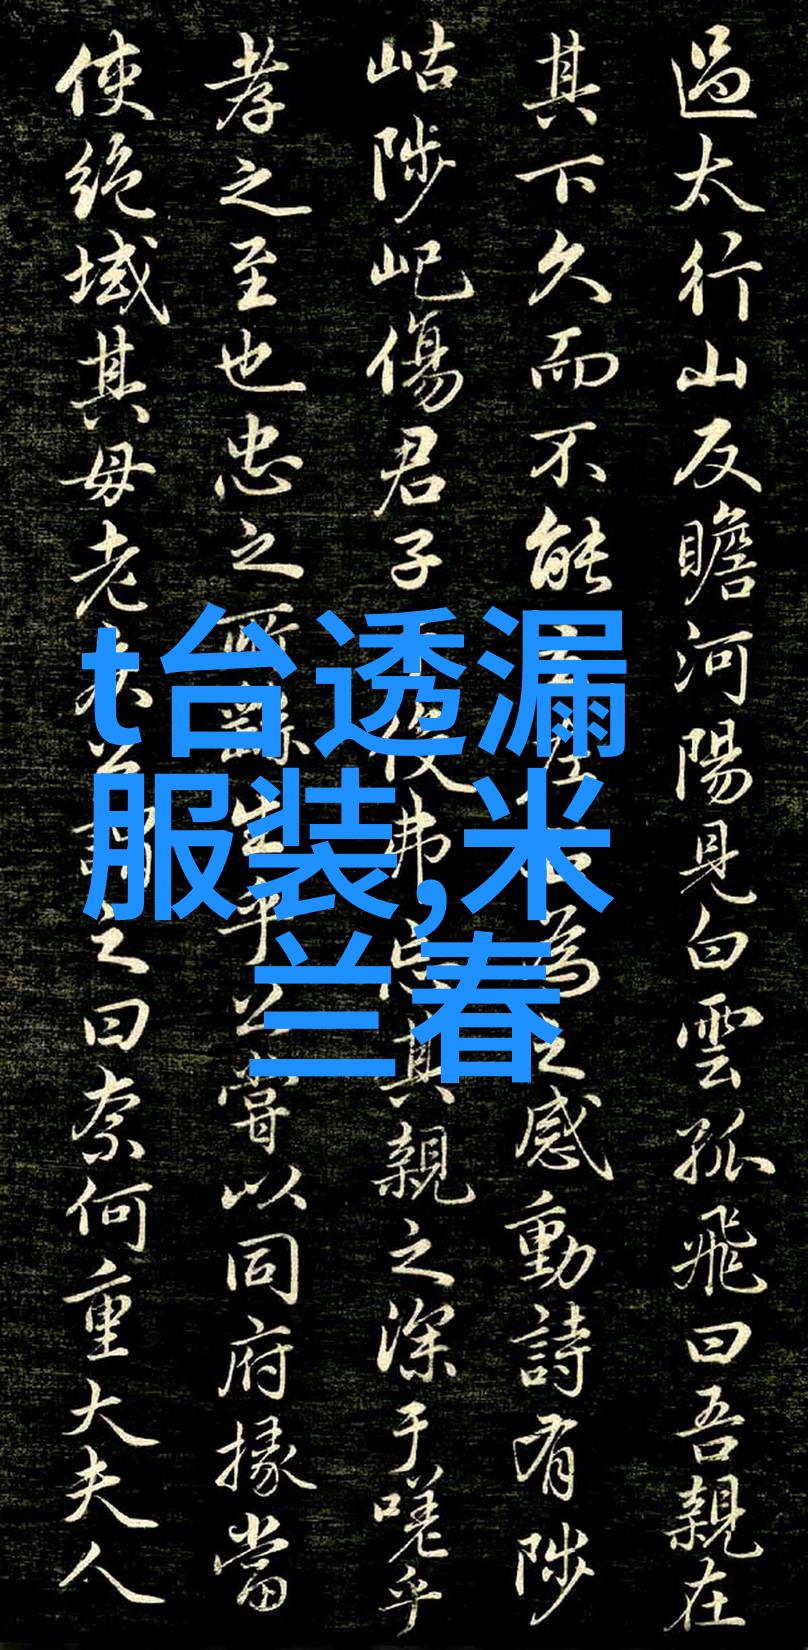 過太行山反瞻河陽見白雲孤飛曰吾親在
其下久而不能為之感動詩有陟
岵陟屺傷君子弗忘其親之深于嗟乎
孝之至也忠之所生乎公嘗以同府掾當
使絕域其母老矣公謂之曰奈何重大夫人
t台透漏
服装,米
兰春